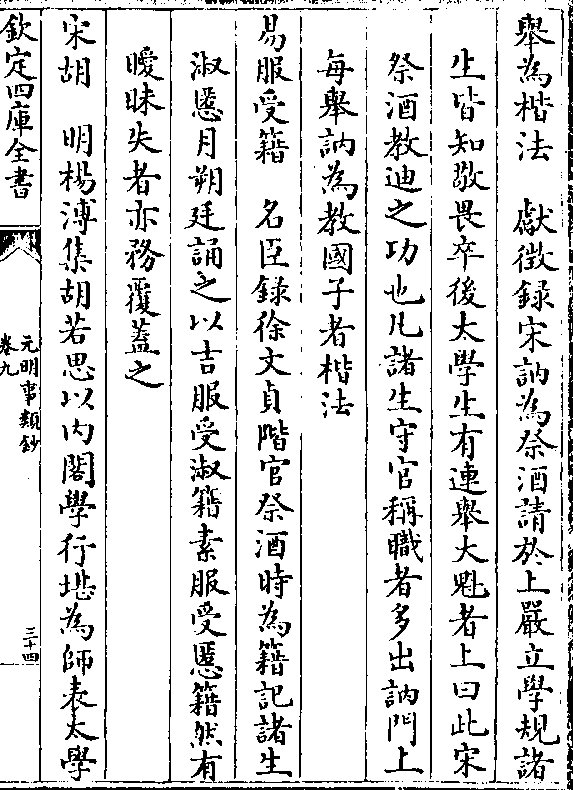 舉為楷法　獻徵録宋訥為祭酒請於上嚴立學規諸
生皆知敬畏卒後太學生有連舉大魁者上曰此宋
祭酒教迪之功也凡諸生守官稱職者多出訥門上
每舉訥為教國子者楷法
易服受籍　名臣録徐文貞階官祭酒時為籍記諸生
淑慝月朔廷誦之以吉服受淑籍素服受慝籍然有
曖昧失者亦務覆蓋之
宋胡　明楊溥集胡若思以内閣學行堪為師表太學
欽定四庫全書
元明事類鈔
卷九
三十四